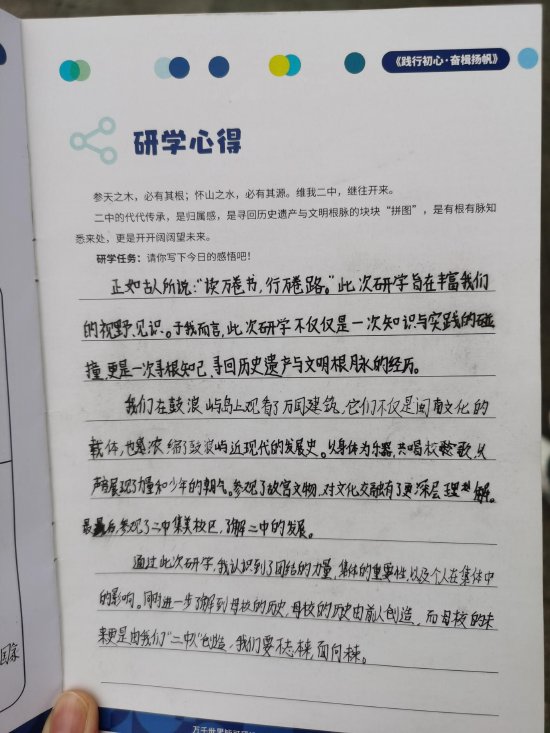 《践行初心·奋楫扬帆》
研学心得
参天之木，必有其根；怀山之水，必有其源。维我二中，继往开来。
二中的代代传承，是归属感，是寻回历史遗产与文明根脉的块块“拼图”，是有根有脉知
悉来处，更是开开阔阔望未来。
研学任务：请你写下今日的感悟吧！
正如古人所说：“读万卷书，行万卷路。”此次研学旨在丰富我们
的视野、见识。于我而言，此次研学不仅仅是一次知识与实践的碰
撞，更是一次寻根知己、寻回历史遗产与文明根脉的经历。
我们在鼓浪屿岛上观看了万国建筑，它们不仅是闽南文化的
载体，也浓缩了鼓浪屿近现代的发展史。以身体为乐器，共唱校歌，从
声音展现了力量和少年的朝气。参观了故宫文物，对文化交融有了更深层理解。
最后，参观了二中集美校区，了解二中的发展。
通过此次研学，我认识到了团结的力量，集体的重要性，以及个人在集体中
的影响。同时进一步了解到母校的历史，母校的历史由前人创造，而母校的未
来更是由我们“二中人”创造，我们要不忘本来，面向未来。
国家